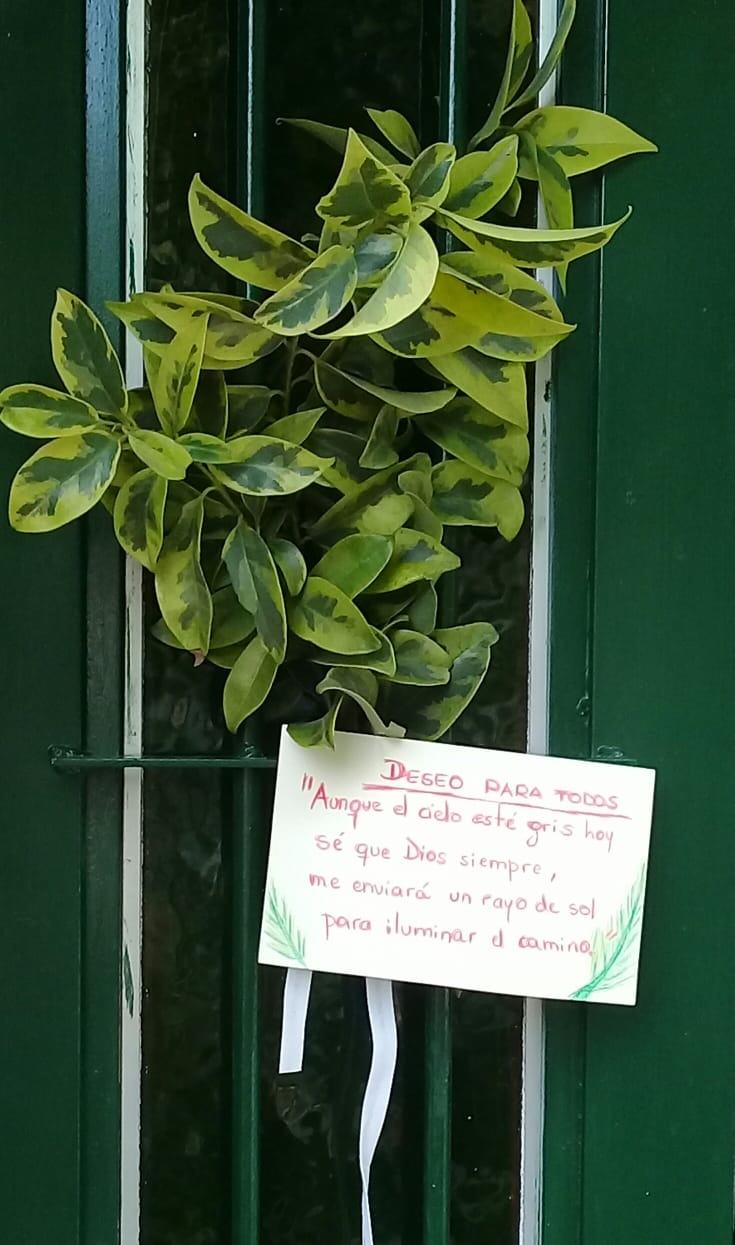 DESEO PARA TODOS
"Aunque el cielo esté gris hoy
sé que Dios siempre,
me enviará un rayo de sol
para iluminar el camino."